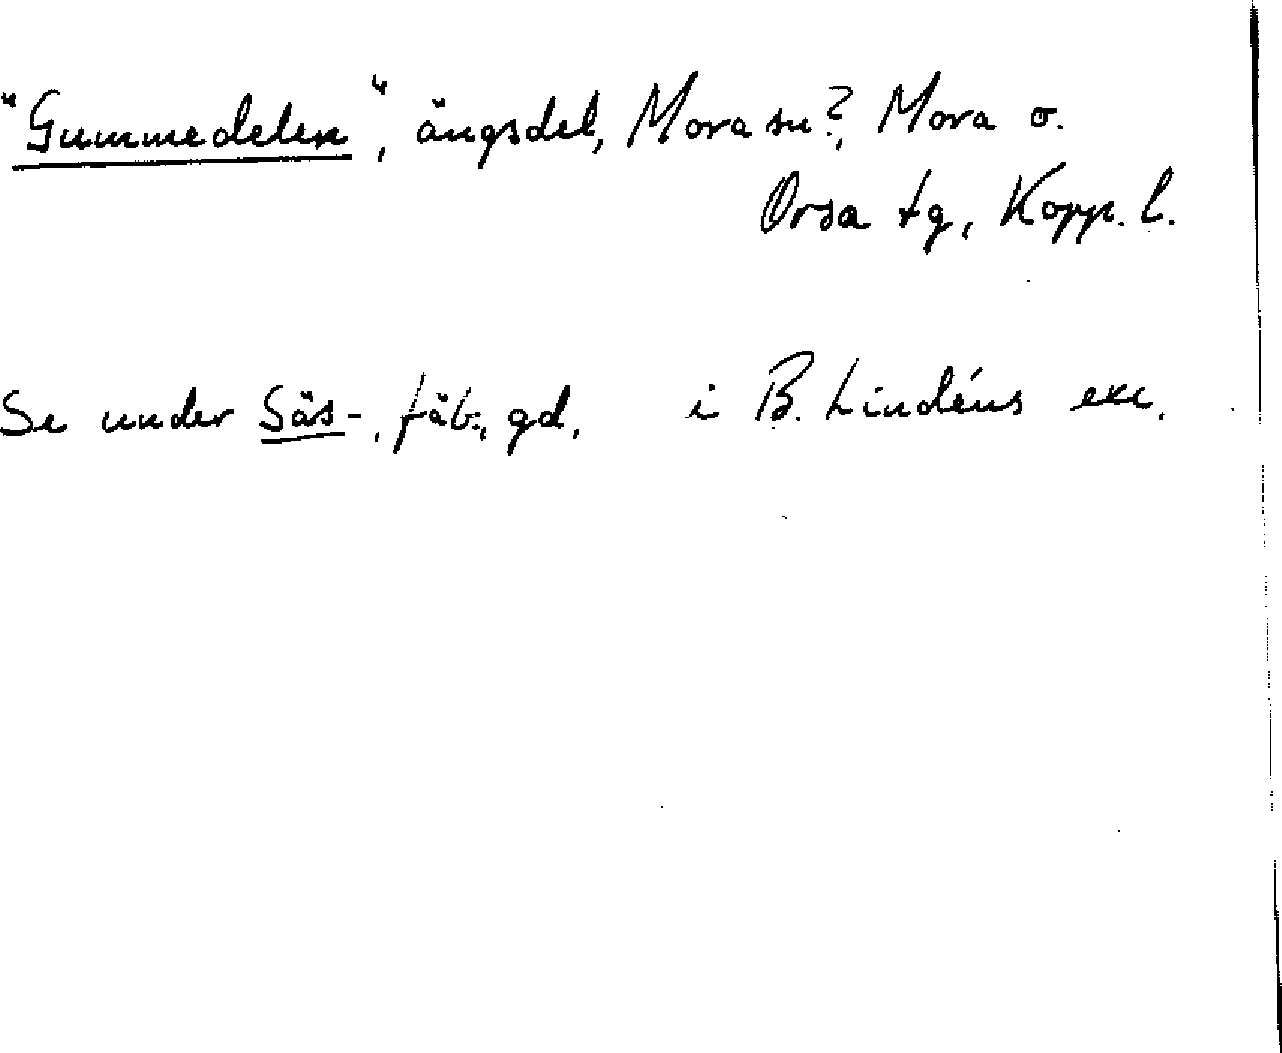 "Gummedelen", ängsdel, Mora sn?, Mora o.
Orsa tg, Kopp. l.
Se under Säs-, fäb., gd, i B. Lindéns exc.